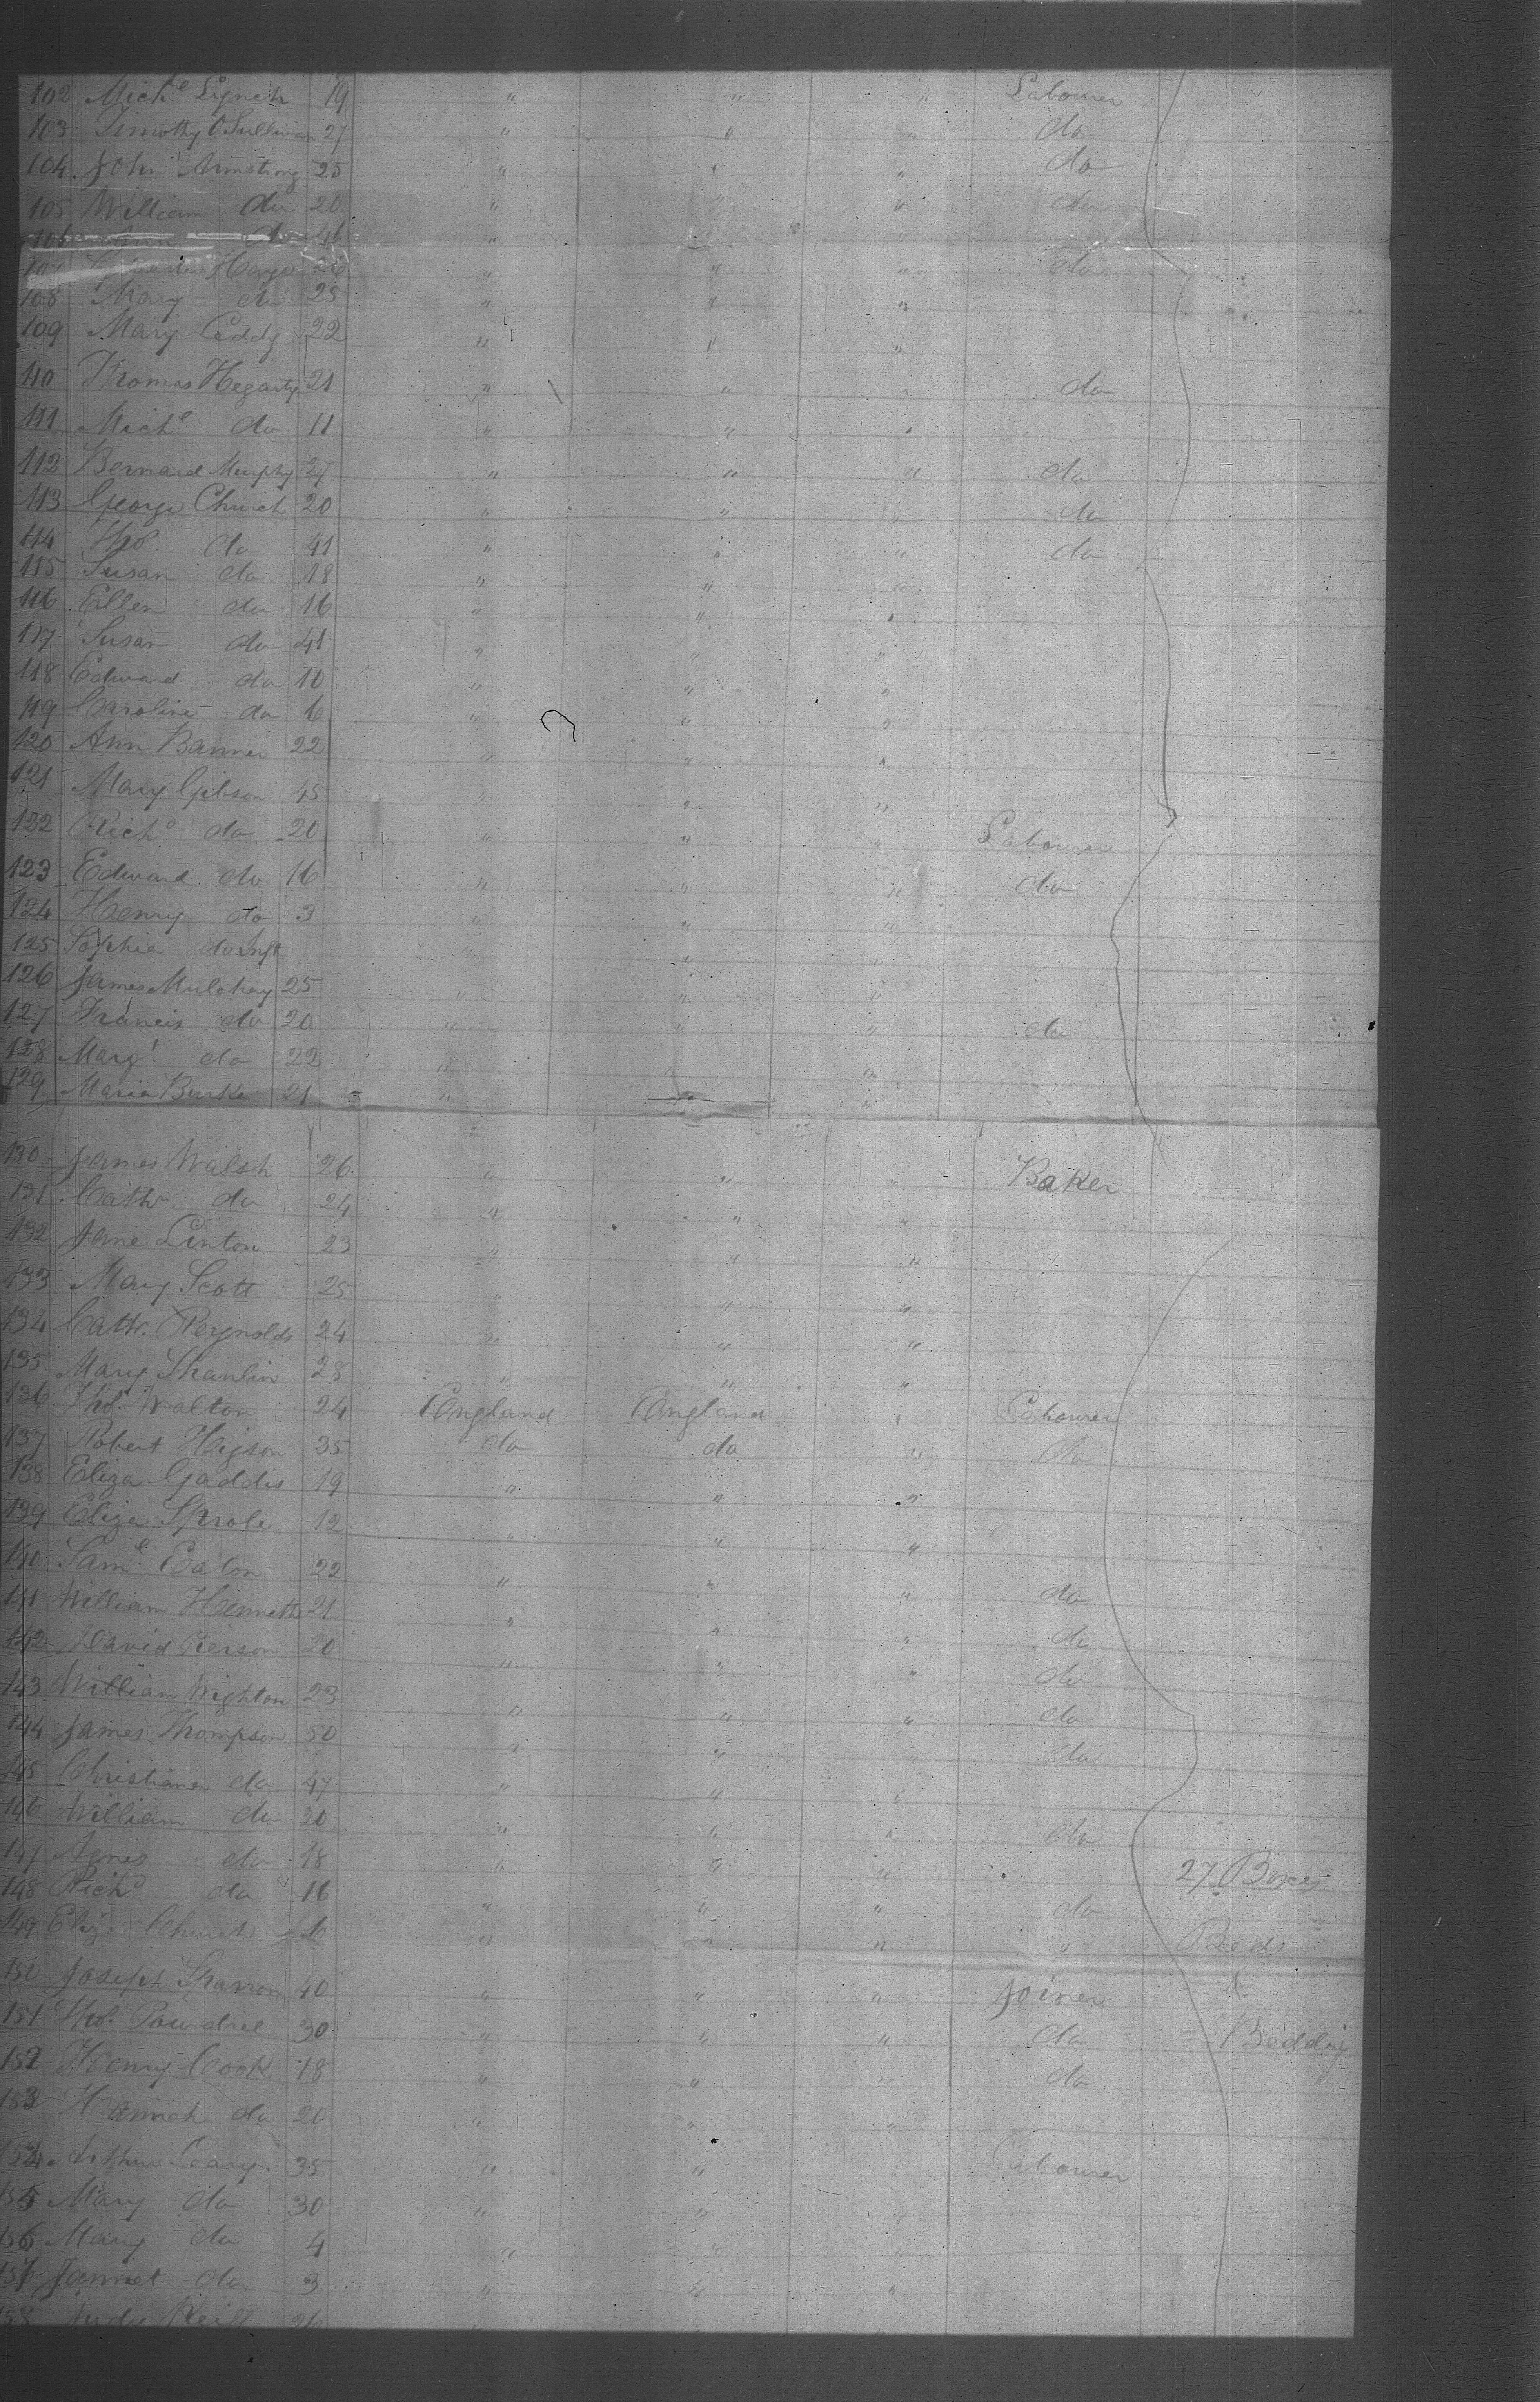 102 Michl Lynch 19 " " " Labourer
103 Timothy O'Sullivan 27 " " " do
104 John Armstrong 25 " " " do
105 William do 20 " " " do
106 Ann do 46 " " "
107 Hayes 26 " " " do
108 Mary do 25 " " "
109 Mary Eddy 22 " " "
110 Thomas Hegarty 21 " " " do
111 Michl do 11 " " "
112 Bernard Murphy 27 " " " do
113 George Church 20 " " " do
114 Thos do 41 " " " do
115 Susan do 18 " " "
116 Ellen do 16 " " "
117 Susan do 41 " " "
118 Edward do 10 " " "
119 Caroline do 6 " " "
120 Ann Banner 22 " " "
121 Mary Gibson 45 " " "
122 Richd do 20 " " " Labourer
123 Edward do 16 " " " do
124 Henry do 3 " " "
125 Sophia do Inft " " "
126 James Mulchay 25 " " "
127 Francis do 20 " " " do
128 Margt do 22 " " "
129 Maria Burke 21 " " "
130 James Walsh 26 " " " Baker
131 Cathr. do 24 " " "
132 Jane Linton 23 " " "
133 Mary Scott 25 " " "
134 Cathr. Reynolds 24 " " "
135 Mary Shanlin 28 " " "
136 Thos. Walton 24 England England " Labourer
137 Robert Higson 35 do do " do
138 Eliza Gaddis 19 " " "
139 Eliza Sprole 12 " " "
140 Saml Eaton 22 " " " do
141 William Hennett 21 " " " do
142 David Pierson 20 " " " do
143 William Wighton 23 " " " do
144 James Thompson 50 " " " do
145 Christiana do 47 " " "
146 William do 20 " " " do
147 Agnes do 18 " " " 27 Boxes
148 Richd do 16 " " " do
149 Eliza Church 6 " " " " Beds
150 Joseph Sharron 40 " " " Joiner &
151 Thos. Pawdrel 30 " " " do Bedding
152 Henry Cook 18 " " " do
153 Hannah do 20 " " "
154 Arthur Leary 35 " " Labourer
155 Mary do 30 " " "
156 Mary do 4 " " "
157 Jannet do 3 " " "
158 Judy 26